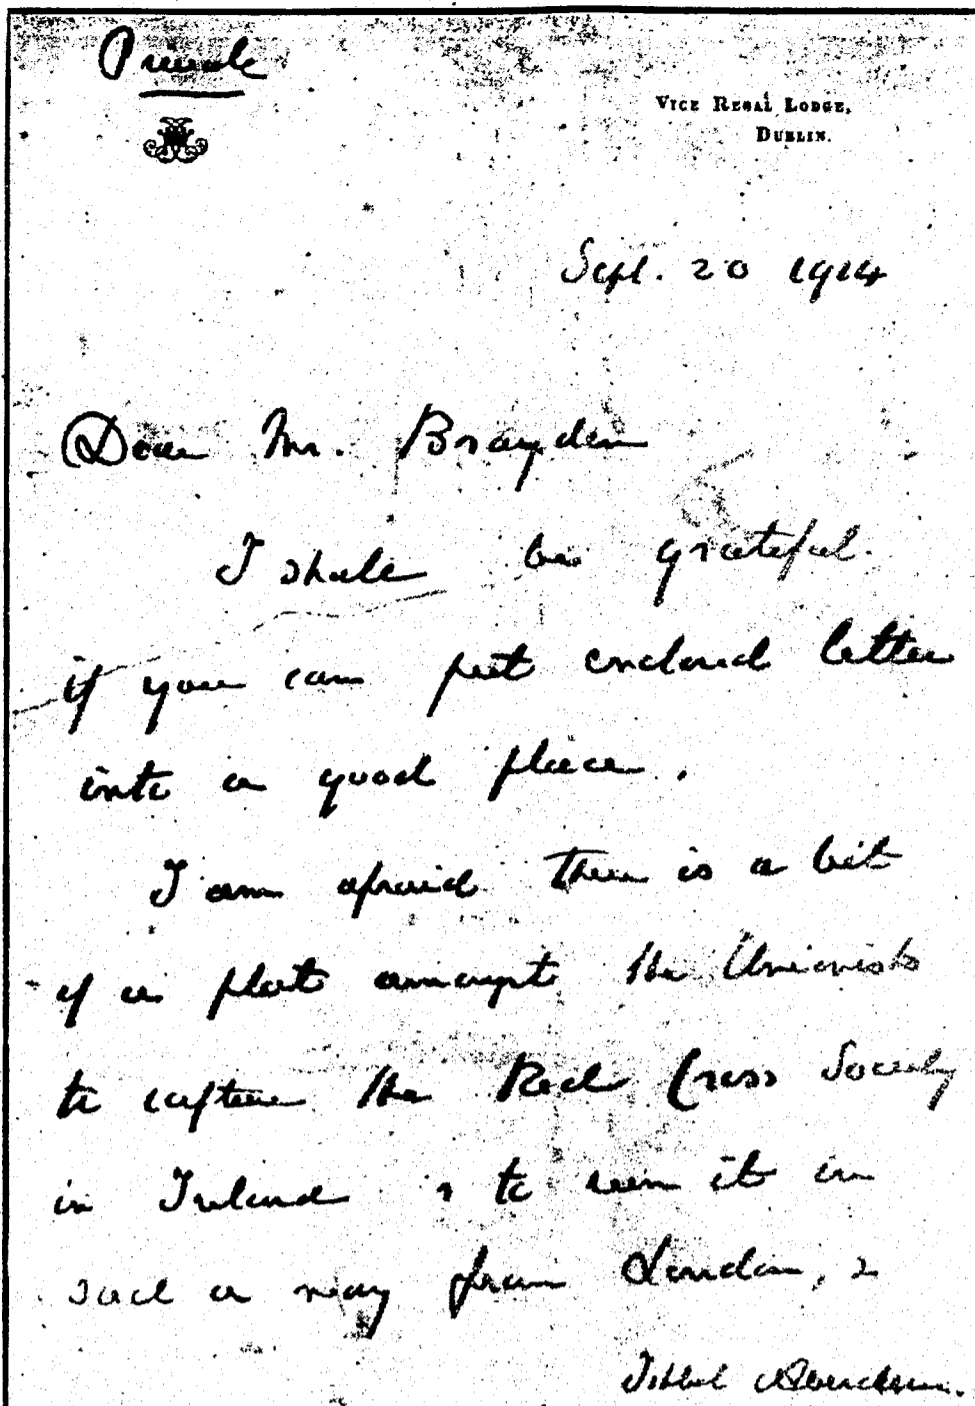 Private
VICE REGAL LODGE,
DUBLIN.
Sept. 20 1914
Dear Mr. Brayden
I shall be grateful
if you can put enclosed letter
into a good place.
I am afraid there is a bit
of a plot amongst the Unionists
to capture the Red Cross Society
in Ireland & to run it in
such a way from London, &
Ishbel Aberdeen.